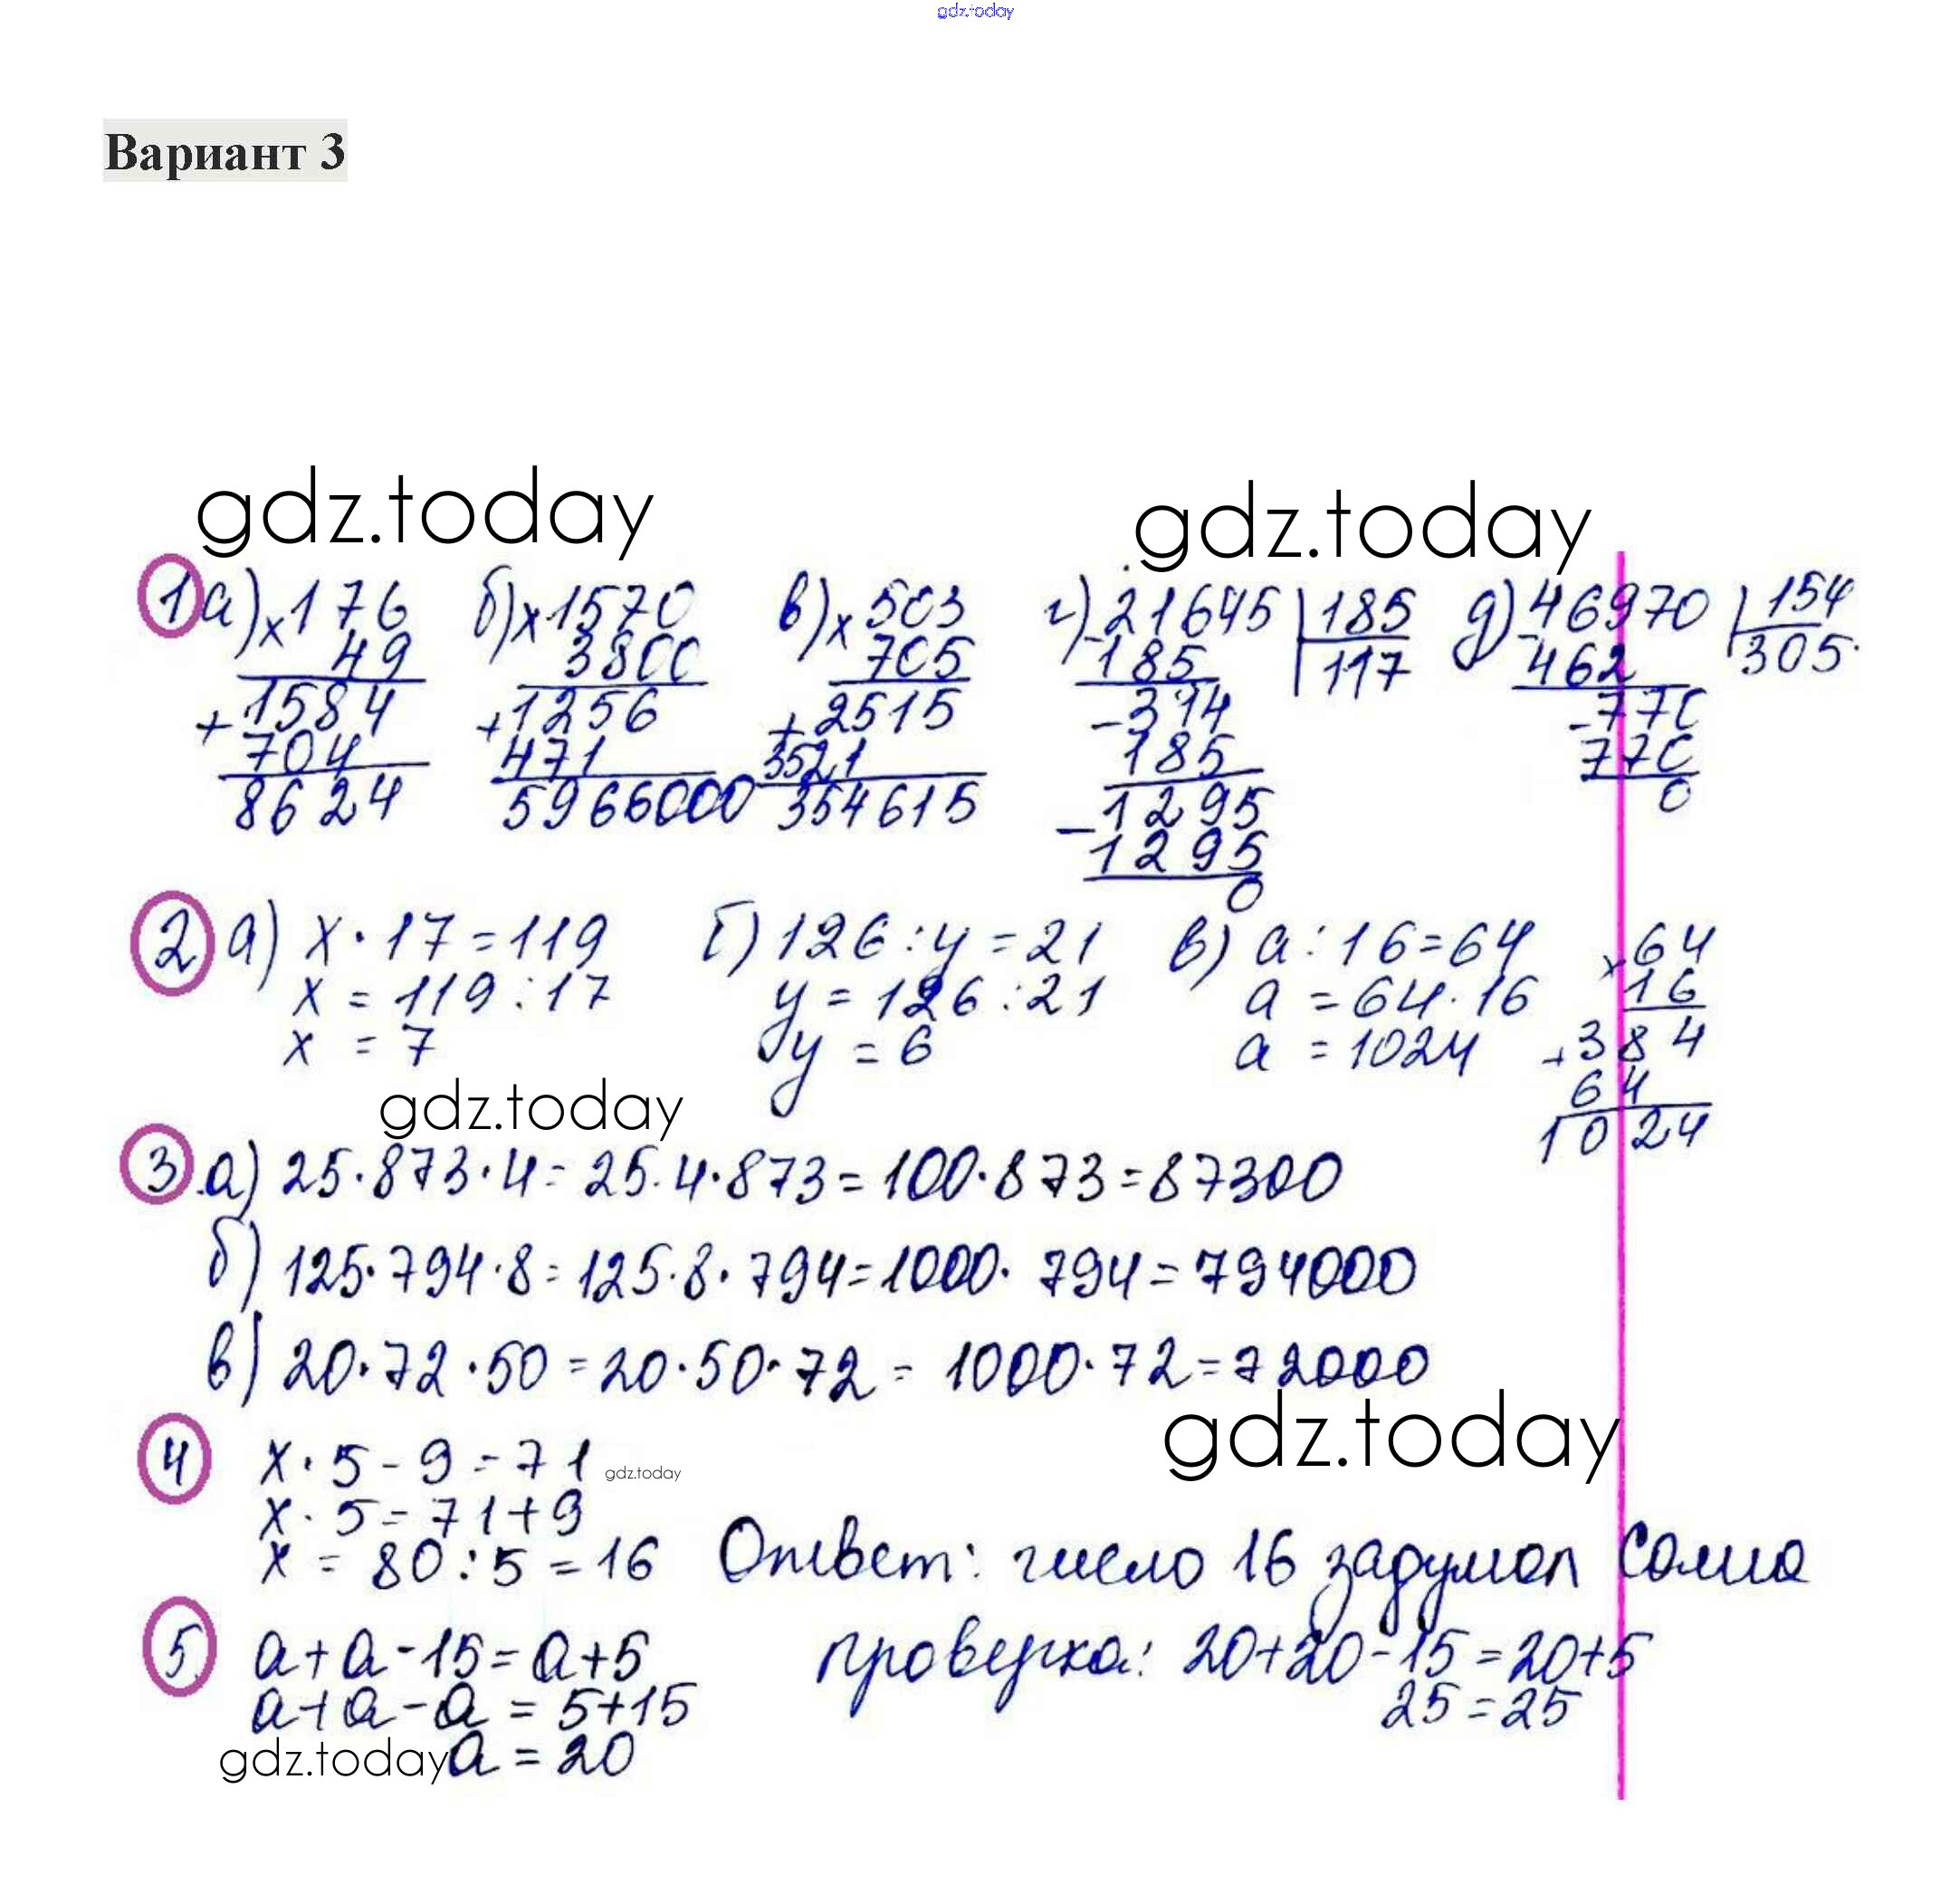 gdz.today
Вариант 3
gdz.today gdz.today
1 а) × 176 б) × 1570 в) × 503 г) 21645 | 185 д) 46970 | 154
49 3800 705 - 185 117 - 462 305
1584 + 1256 + 2515 - 314 - 770
+ 704 471 3521 185 770
8624 5966000 354615 - 1295 0
1295
0
2 а) x · 17 = 119 б) 126 : y = 21 в) a : 16 = 64 × 64
x = 119 : 17 y = 126 : 21 a = 64 · 16 16
x = 7 y = 6 a = 1024 + 384
64
1024
gdz.today
3 а) 25 · 873 · 4 = 25 · 4 · 873 = 100 · 873 = 87300
б) 125 · 794 · 8 = 125 · 8 · 794 = 1000 · 794 = 794000
в) 20 · 72 · 50 = 20 · 50 · 72 = 1000 · 72 = 72000
gdz.today
4 x · 5 - 9 = 71 gdz.today
x · 5 = 71 + 9
x = 80 : 5 = 16 Ответ: число 16 задумал Сома
5 a + a - 15 = a + 5 проверка: 20 + 20 - 15 = 20 + 5
a + a - a = 5 + 15 25 = 25
gdz.today a = 20